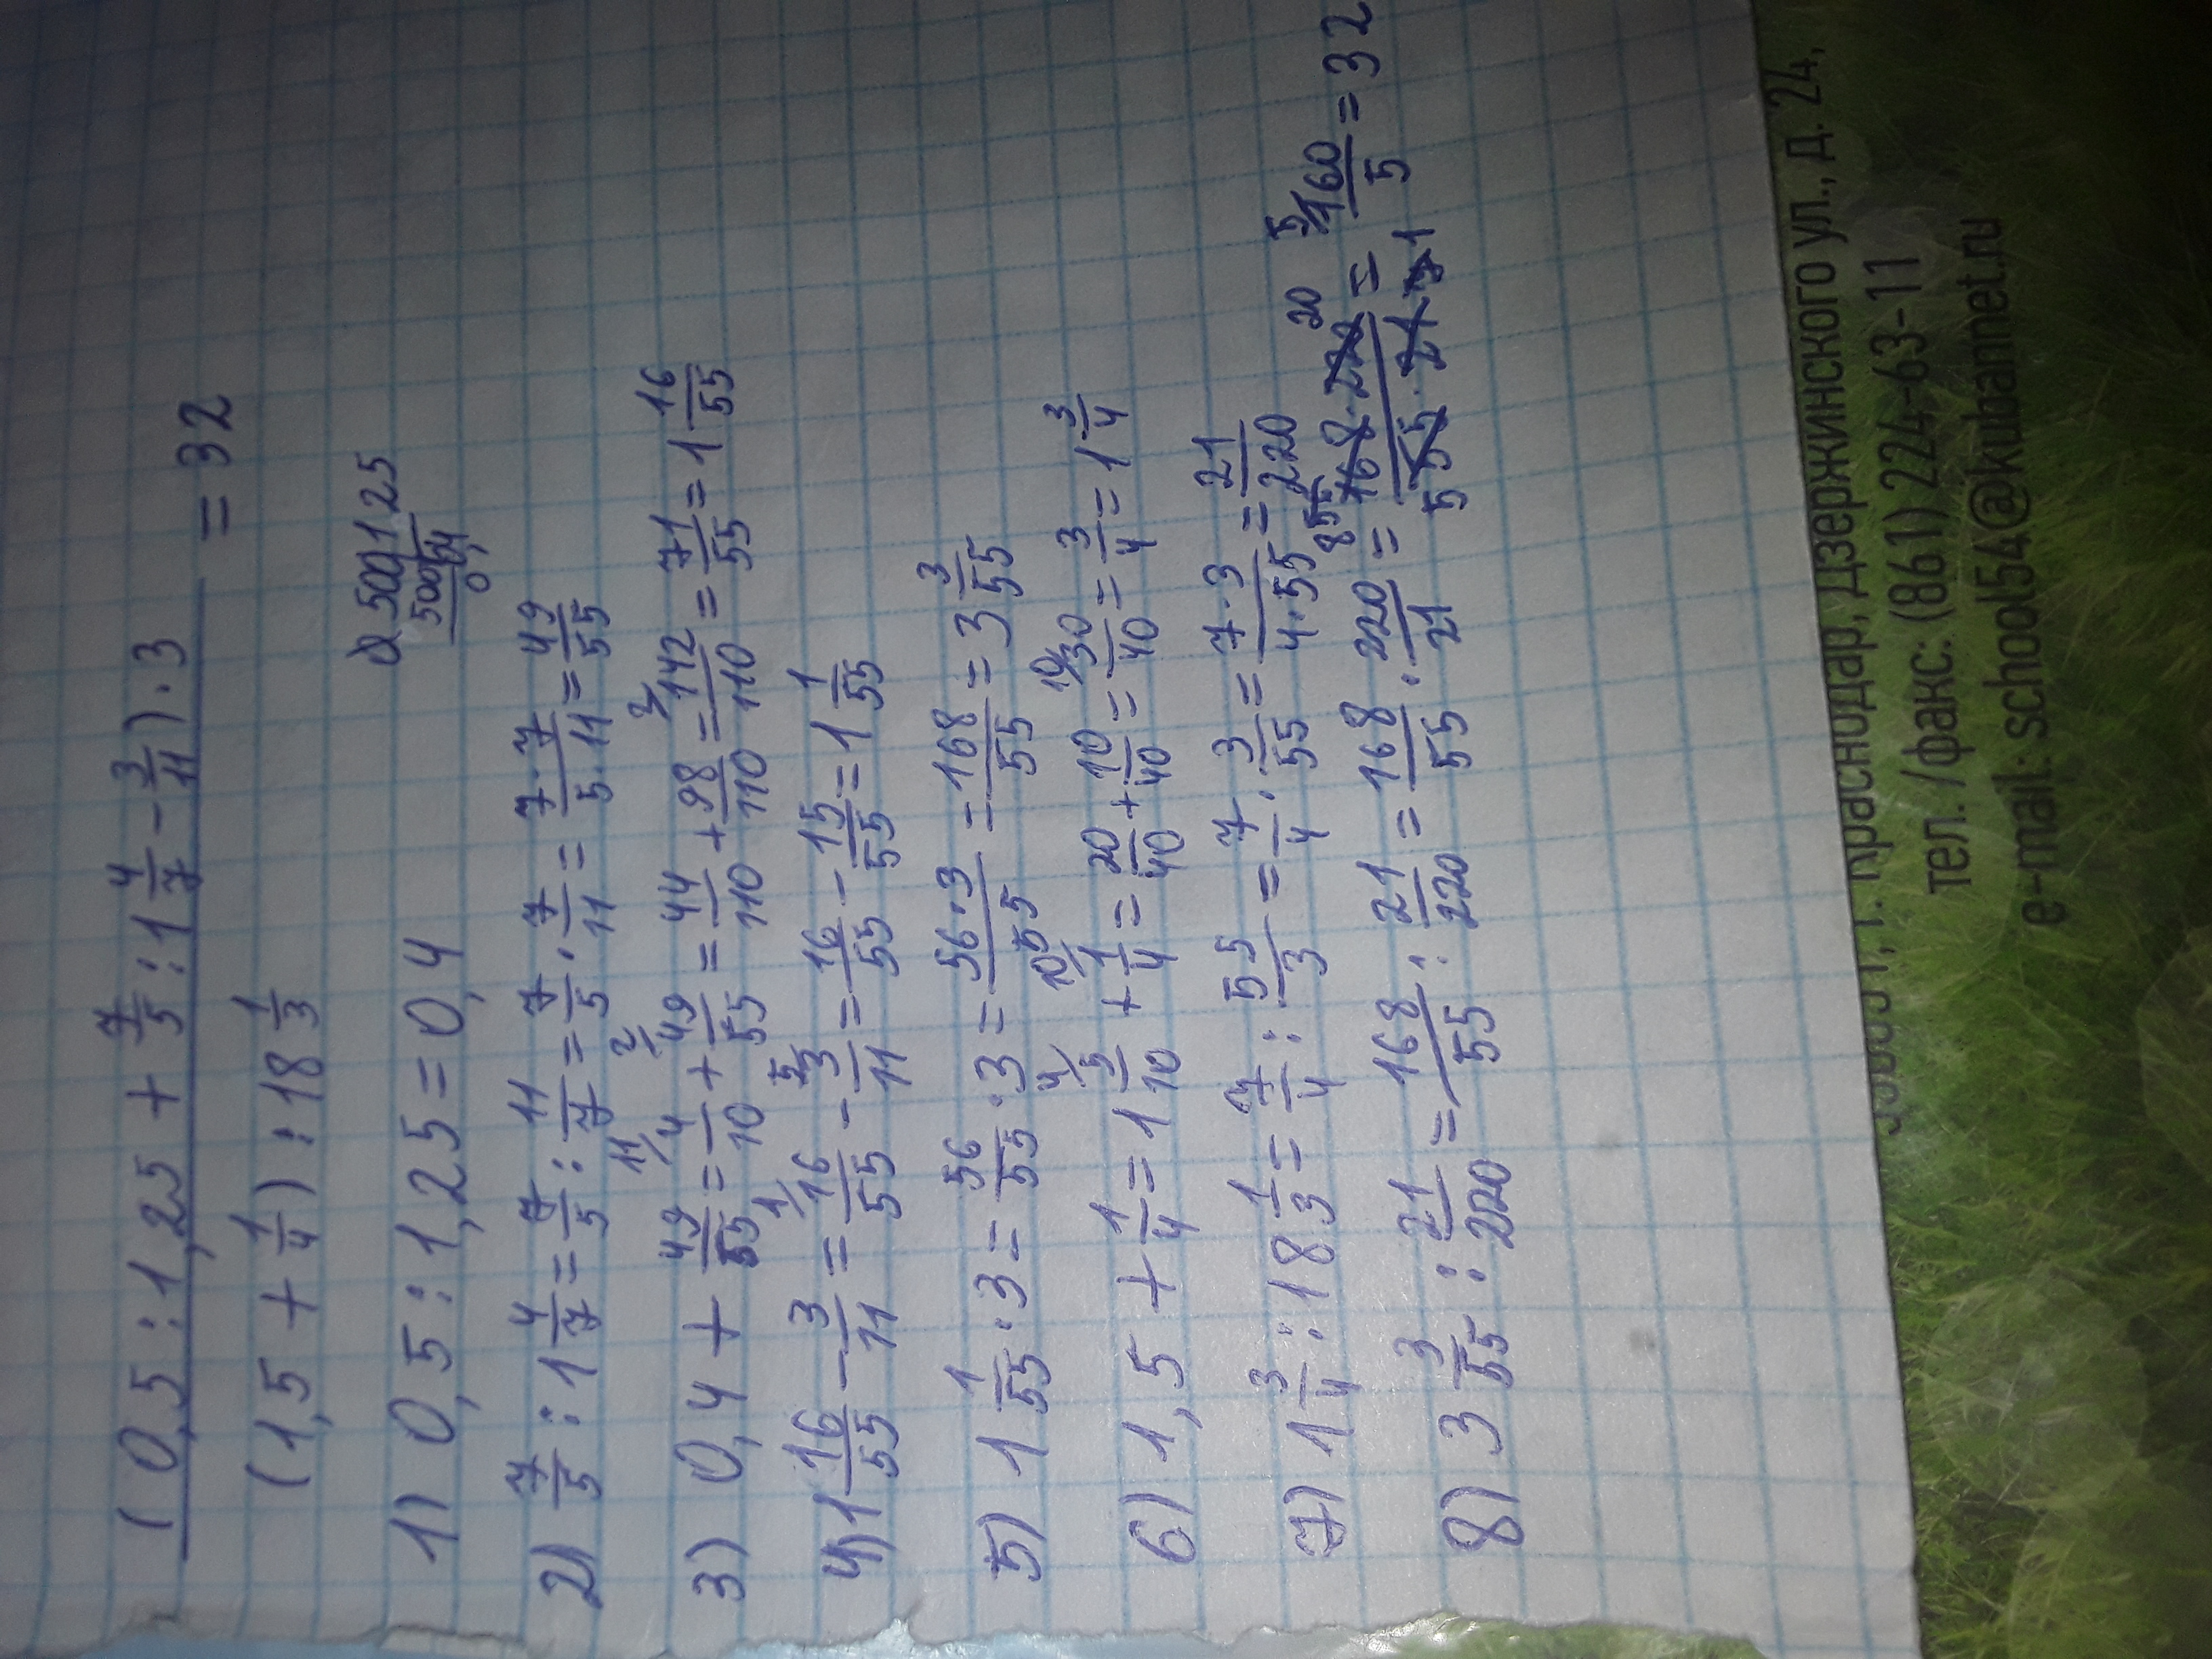 (0,5 : 1,25 + 7/5 : 1 4/7 - 3/11) · 3
= 32
(1,5 + 1/4) : 18 1/3
1) 0,5 : 1,25 = 0,4
2) 7/5 : 1 4/7 = 7/5 : 11/7 = 7/5 · 7/11 = 7·7/5·11 = 49/55
3) 0,4 + 49/55 = 4/10 + 49/55 = 44/110 + 98/110 = 142/110 = 71/55 = 1 16/55
4) 1 16/55 - 3/11 = 1 16/55 - 3/11 = 1 16/55 - 15/55 = 1 1/55
5) 1 1/55 · 3 = 56/55 · 3 = 56·3/55 = 168/55 = 3 3/55
6) 1,5 + 1/4 = 1 5/10 + 1/4 = 20/40 + 10/40 = 30/40 = 3/4 = 1 3/4
7) 1 3/4 : 18 1/3 = 7/4 : 55/3 = 7/4 · 3/55 = 7·3/4·55 = 21/220
8) 3 3/55 : 21/220 = 168/55 : 21/220 = 168/55 · 220/21 = 168·220/55·21 = 160/5 = 32
г. Краснодар, Дзержинского ул., д. 24,
тел. /факс: (861) 224-63-11
e-mail: school54@kubannet.ru